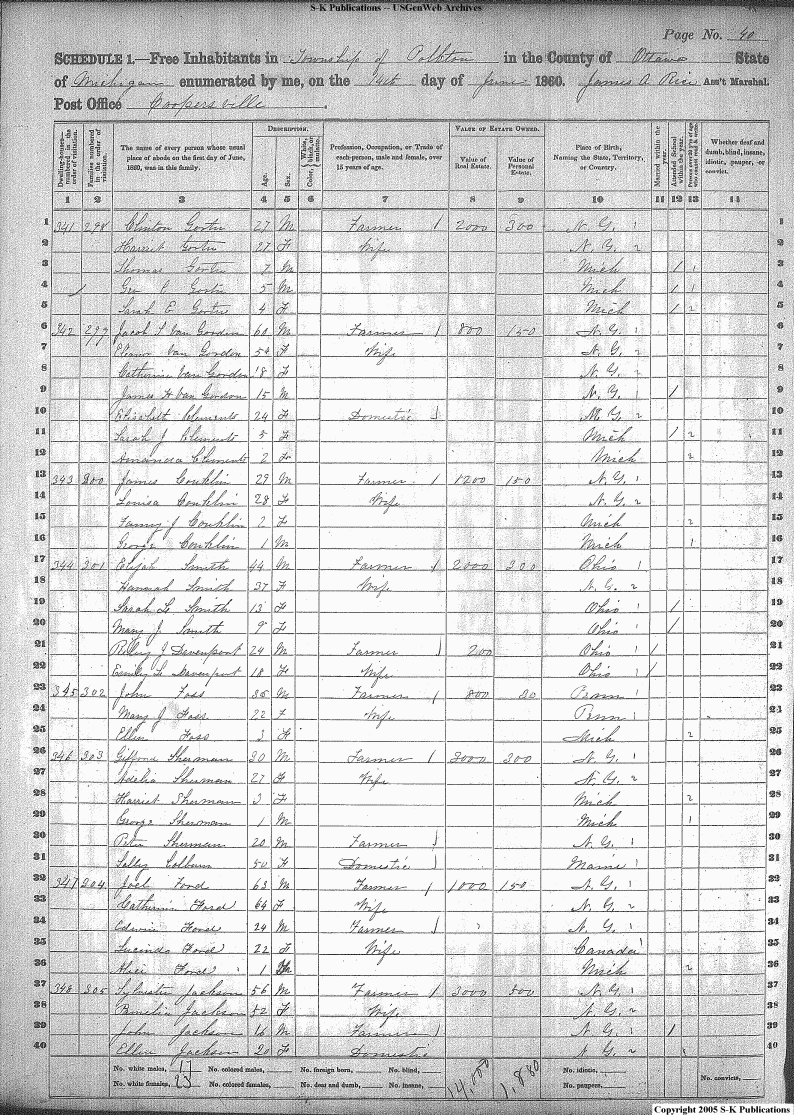 S-K Publications -- USGenWeb Archives
Page No. 40
SCHEDULE 1.—Free Inhabitants in Township of Polkton in the County of Ottawa State
of Michigan enumerated by me, on the 14th day of June 1860. James A Rice Ass't Marshal.
Post Office Coopersville
Dwelling-houses numbered in the order of visitation.
Families numbered in the order of visitation.
The name of every person whose usual place of abode on the first day of June, 1860, was in this family.
DESCRIPTION.
Age.
Sex.
Color, White, black, or mulatto.
Profession, Occupation, or Trade of each person, male and female, over 15 years of age.
VALUE OF ESTATE OWNED.
Value of Real Estate.
Value of Personal Estate.
Place of Birth, Naming the State, Territory, or Country.
Married within the year.
Attended School within the year.
Whether deaf and dumb, blind, insane, idiotic, pauper, or convict.
1 2 3 4 5 6 7 8 9 10 11 12 13 14
1 341 298 Clinton 27 M Farmer 1 2000 300 N.Y. 1 1
2 Harriet 27 F Wife N.Y. 2 2
3 Thomas 7 M Mich / 1 3
4 Geo 5 M Mich / 1 4
5 Sarah E 4 F Mich / 2 5
6 342 299 Jacob Van Gorden 60 M Farmer 1 800 150 N.Y. 1 6
7 Eleanor Van Gorden 54 F Wife N.Y. 2 7
8 Catherine Van Gorden 18 F N.Y. 2 8
9 James H Van Gordon 15 M N.Y. 1 / 9
10 Elizabeth Clements 24 F Domestic N.Y. 2 10
11 Sarah J Clements 5 F Mich / 2 11
12 Amanda Clements 2 F Mich 2 12
13 343 300 James Conklin 29 M Farmer 1 1200 150 N.Y. 1 13
14 Louisa Conklin 28 F Wife N.Y. 2 14
15 Fanny J Conklin 2 F Mich 2 15
16 George Conklin 1 M Mich 1 16
17 344 301 Elijah Smith 44 M Farmer 1 2000 200 Ohio 1 17
18 Hannah Smith 37 F Wife N.Y. 2 18
19 Sarah L Smith 13 F Ohio / 19
20 Mary J Smith 9 F Ohio / 20
21 Riley J Davenport 24 M Farmer 200 Ohio 1 / 21
22 Emily L Davenport 18 F Wife Ohio / 22
23 345 302 John Foss M Farmer 1 800 Penn 1 23
24 Mary J Foss 22 F Wife Penn 24
25 Ellen Foss 3 F Mich 2 25
26 346 303 Sherman 30 M Farmer 1 3000 300 N.Y. 1 26
27 Adelia Sherman 27 F Wife N.Y. 2 27
28 Harriet Sherman 3 F Mich 2 28
29 George Sherman 1 M Mich 1 29
30 Peter Sherman 20 M Farmer N.Y. 1 30
31 Sally Colburn 50 F Domestic Maine 31
32 347 304 Joel Ford 63 M Farmer 1 1000 150 N.Y. 1 32
33 Catherine Ford 64 F Wife N.Y. 2 33
34 Edwin Ford 24 M Farmer N.Y. 1 34
35 Lucinda Ford 22 F Wife Canada 35
36 Alice Ford 1 Mich 2 36
37 348 305 Sylvester Jackson 56 M Farmer 1 3000 500 N.Y. 1 37
38 Jackson 52 F Wife N.Y. 2 38
39 John Jackson 16 M Farmer N.Y. 1 / 39
40 Ellen Jackson 20 F Domestic N.Y. 2 40
No. white males, 17 No. colored males, No. foreign born, No. blind, 14,000 1,880 No. idiotic, No. convicts,
No. white females, 23 No. colored females, No. deaf and dumb, No. insane, No. paupers,
Copyright 2005 S-K Publications